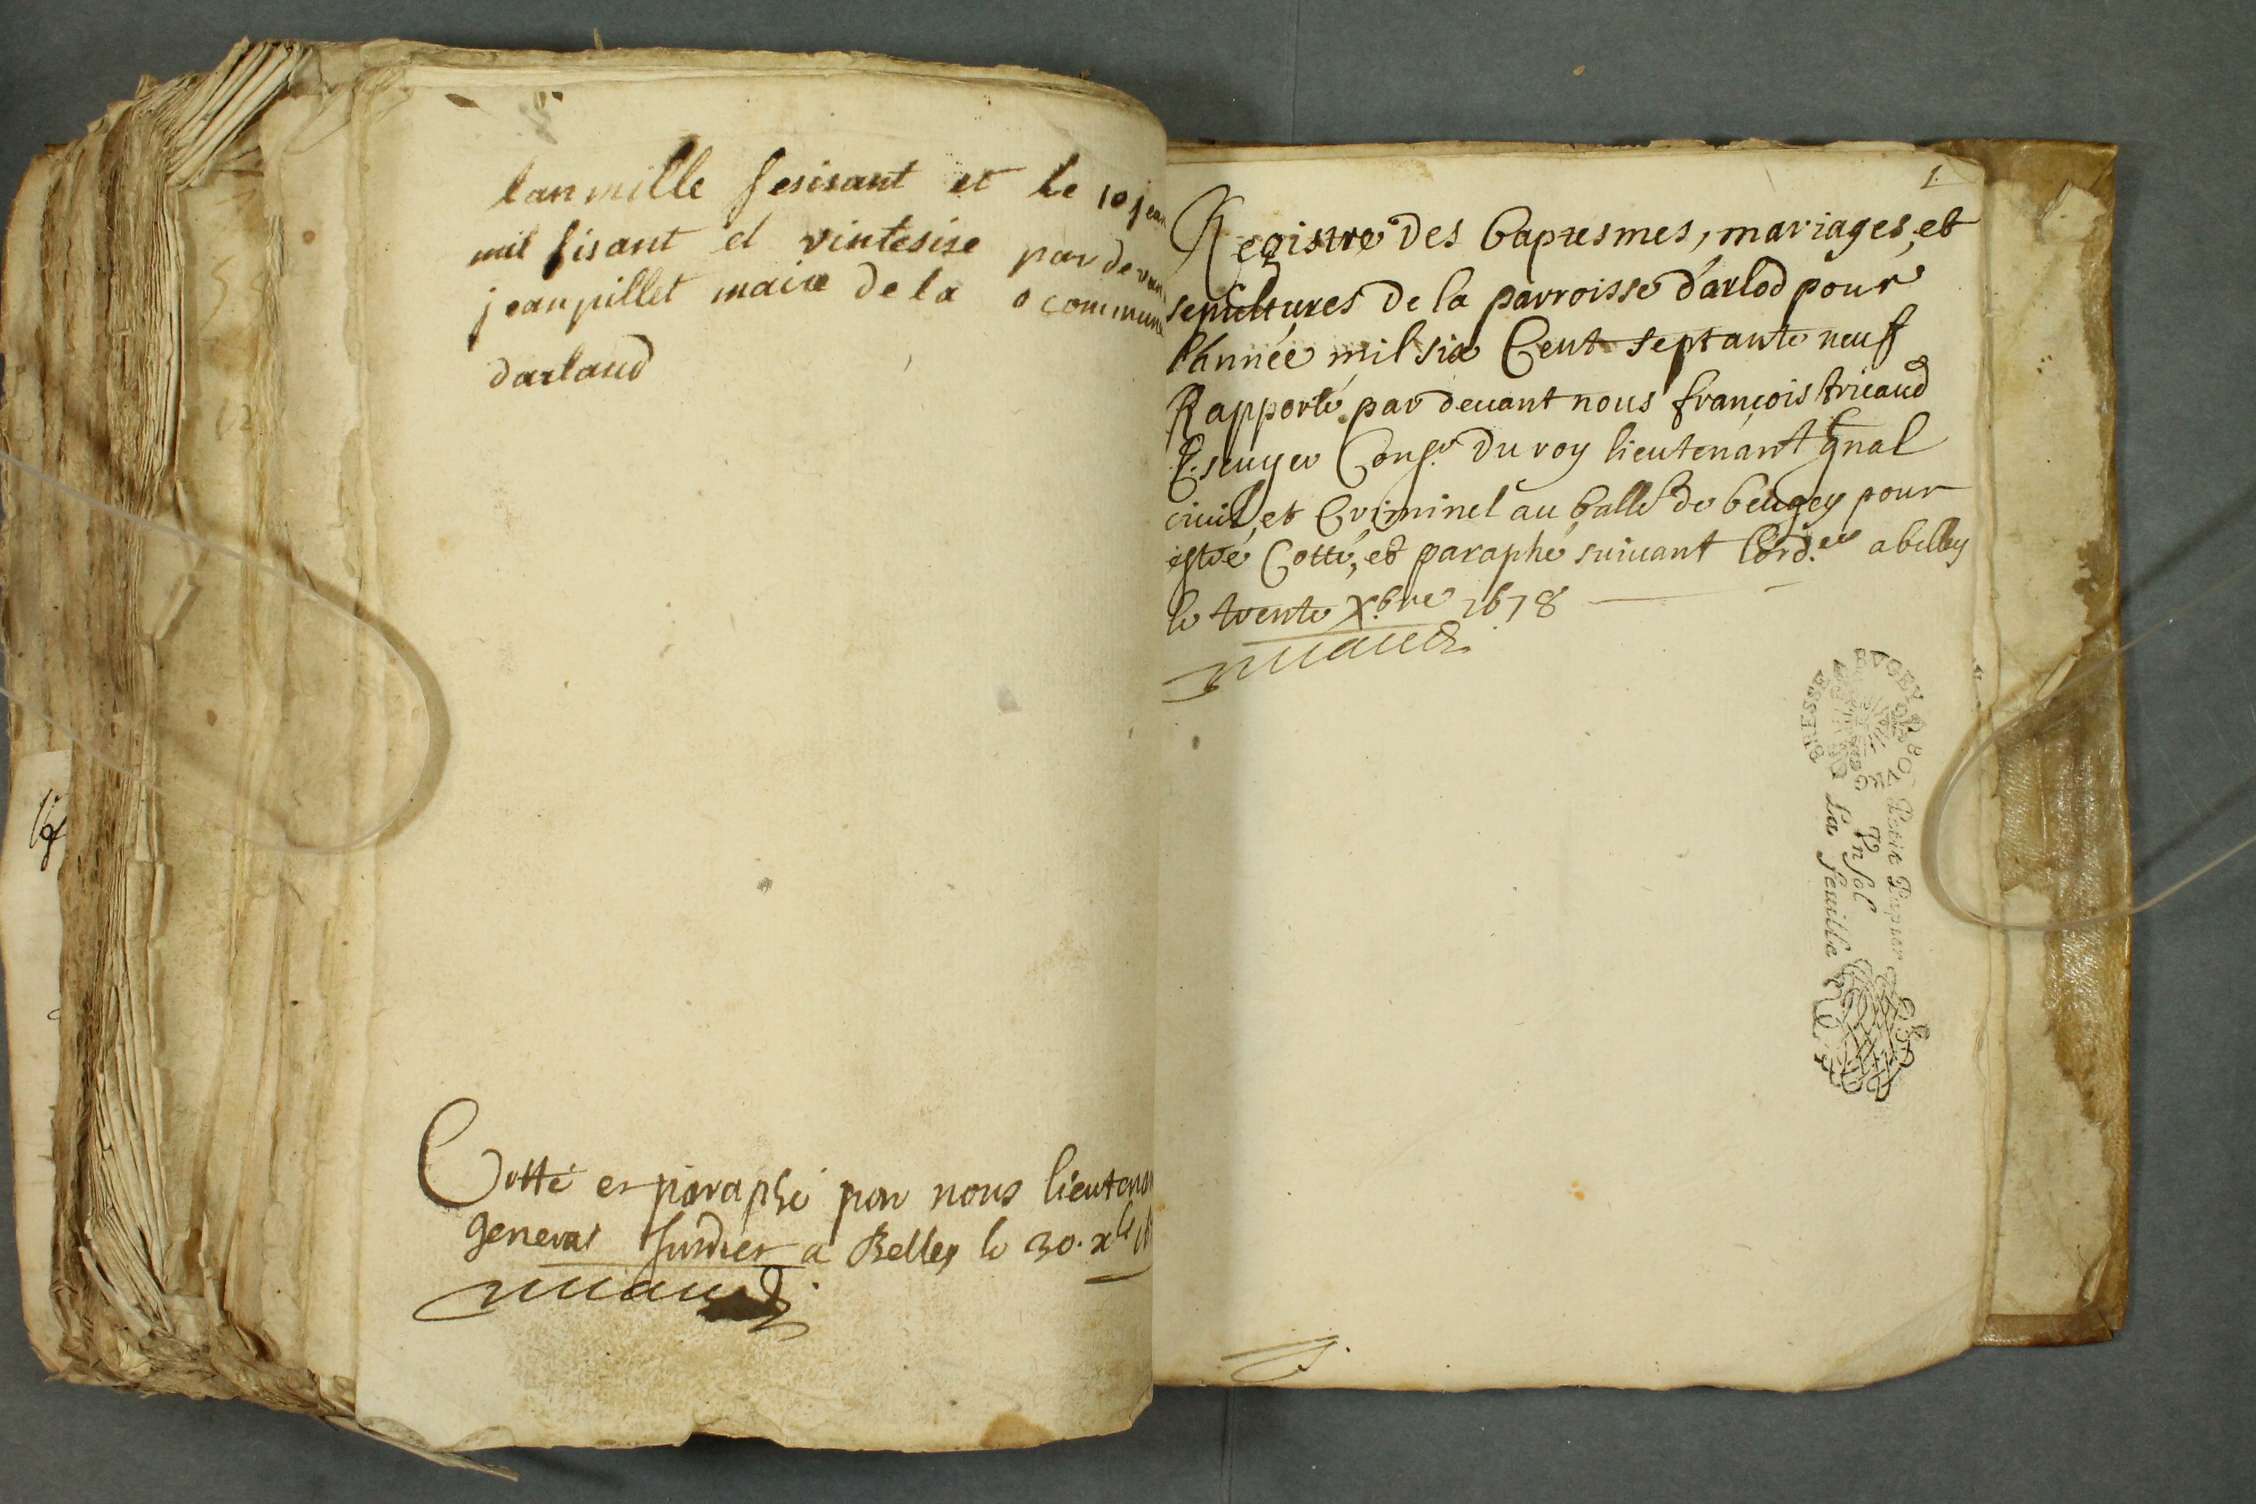 lan mille sesisant et le 10 jean
mil sisant et vintesise par devan
jean pillet maire de la o commune
darlaud
Cotté et paraphé par nous lieutenan
general susdict a Belley le 30. xbre
Tricaud
1.
Registre des baptesmes, mariages, et
sepultures de la parroisse d'arlod pour
l'année mil six Cent septante neuf
Rapporté par devant nous françois tricaud
Escuyer Conser du roy lieutenant gnal
civil, et Criminel au balle de beugey pour
estre Cotté, et paraphé suivant l'ord.ce a belley
le trente Xbre 1678
Tricaud
BRESSE BVGEY
Petit Papier
Vn sol
La feuille